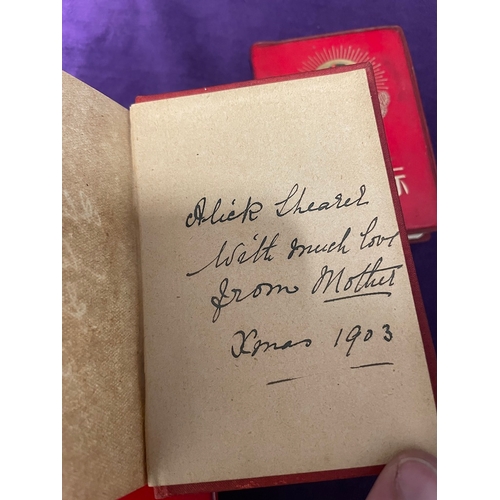 Alick Shearer
With much love
from Mother
Xmas 1903